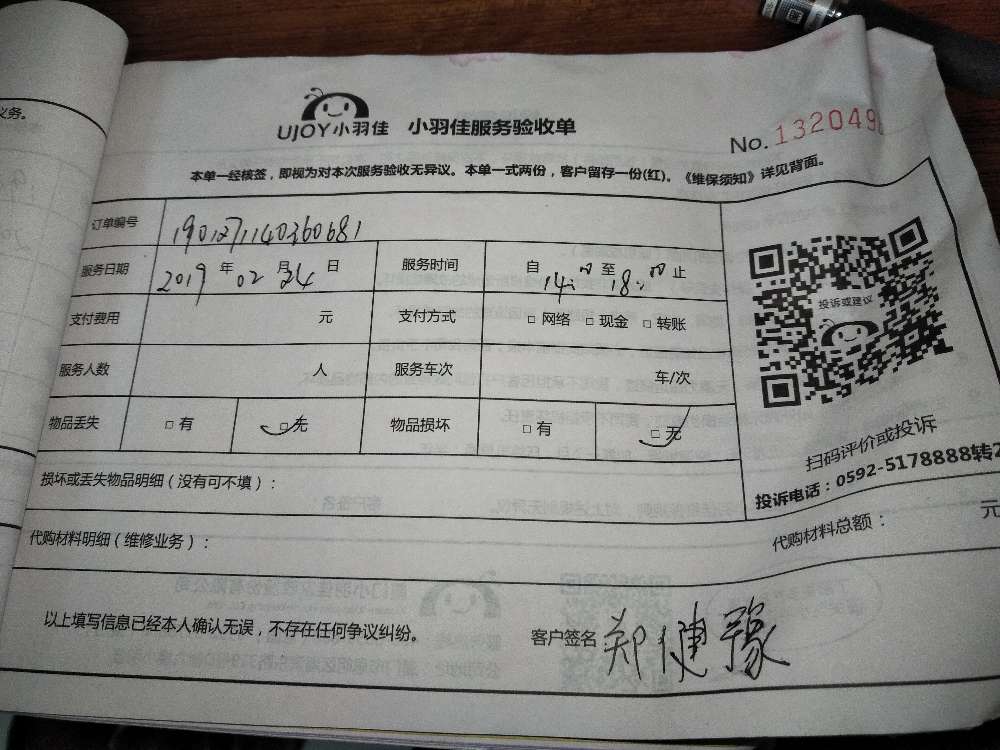 义务。
UJOY小羽佳 小羽佳服务验收单
No.132049
本单一经核签，即视为对本次服务验收无异议。本单一式两份，客户留存一份(红)。《维保须知》详见背面。
订单编号 1901271140360681
服务日期 2019 年 02 月 24 日 服务时间 自 14: 时 至 18: 时 止
支付费用 元 支付方式 □ 网络 □ 现金 □ 转账
服务人数 人 服务车次 车/次
物品丢失 □ 有 □ 无 物品损坏 □ 有 □ 无
投诉或建议
扫码评价或投诉
投诉电话：0592-5178888转2
损坏或丢失物品明细（没有可不填）：
代购材料明细（维修业务）： 代购材料总额： 元
以上填写信息已经本人确认无误，不存在任何争议纠纷。 客户签名 郑健豫